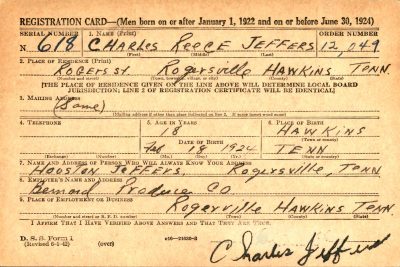 REGISTRATION CARD—(Men born on or after January 1, 1922 and on or before June 30, 1924)
SERIAL NUMBER 1. NAME (Print) ORDER NUMBER
N. 618 CHARLES REECE JEFFERS 12,049
(First) (Middle) (Last)
2. PLACE OF RESIDENCE (Print)
ROGERS ST. ROGERSVILLE HAWKINS TENN.
(Number and street) (Town, township, village, or city) (County) (State)
[THE PLACE OF RESIDENCE GIVEN ON THE LINE ABOVE WILL DETERMINE LOCAL BOARD
JURISDICTION; LINE 2 OF REGISTRATION CERTIFICATE WILL BE IDENTICAL]
3. MAILING ADDRESS
(Same)
[Mailing address if other than place indicated on line 2. If same insert word same]
4. TELEPHONE 5. AGE IN YEARS 6. PLACE OF BIRTH
18 HAWKINS
DATE OF BIRTH (Town or county)
Feb 18 1924 TENN
(Exchange) (Number) (Mo.) (Day) (Yr.) (State or country)
7. NAME AND ADDRESS OF PERSON WHO WILL ALWAYS KNOW YOUR ADDRESS
HOUSTON JEFFERS, ROGERSVILLE, TENN
8. EMPLOYER'S NAME AND ADDRESS
Bernard Produce Co.
9. PLACE OF EMPLOYMENT OR BUSINESS
Rogerville HAWKINS TENN.
(Number and street or R. F. D. number) (Town) (County) (State)
I AFFIRM THAT I HAVE VERIFIED ABOVE ANSWERS AND THAT THEY ARE TRUE.
D. S. S. Form 1
(Revised 6-9-42) (over)
Charles Jeffers